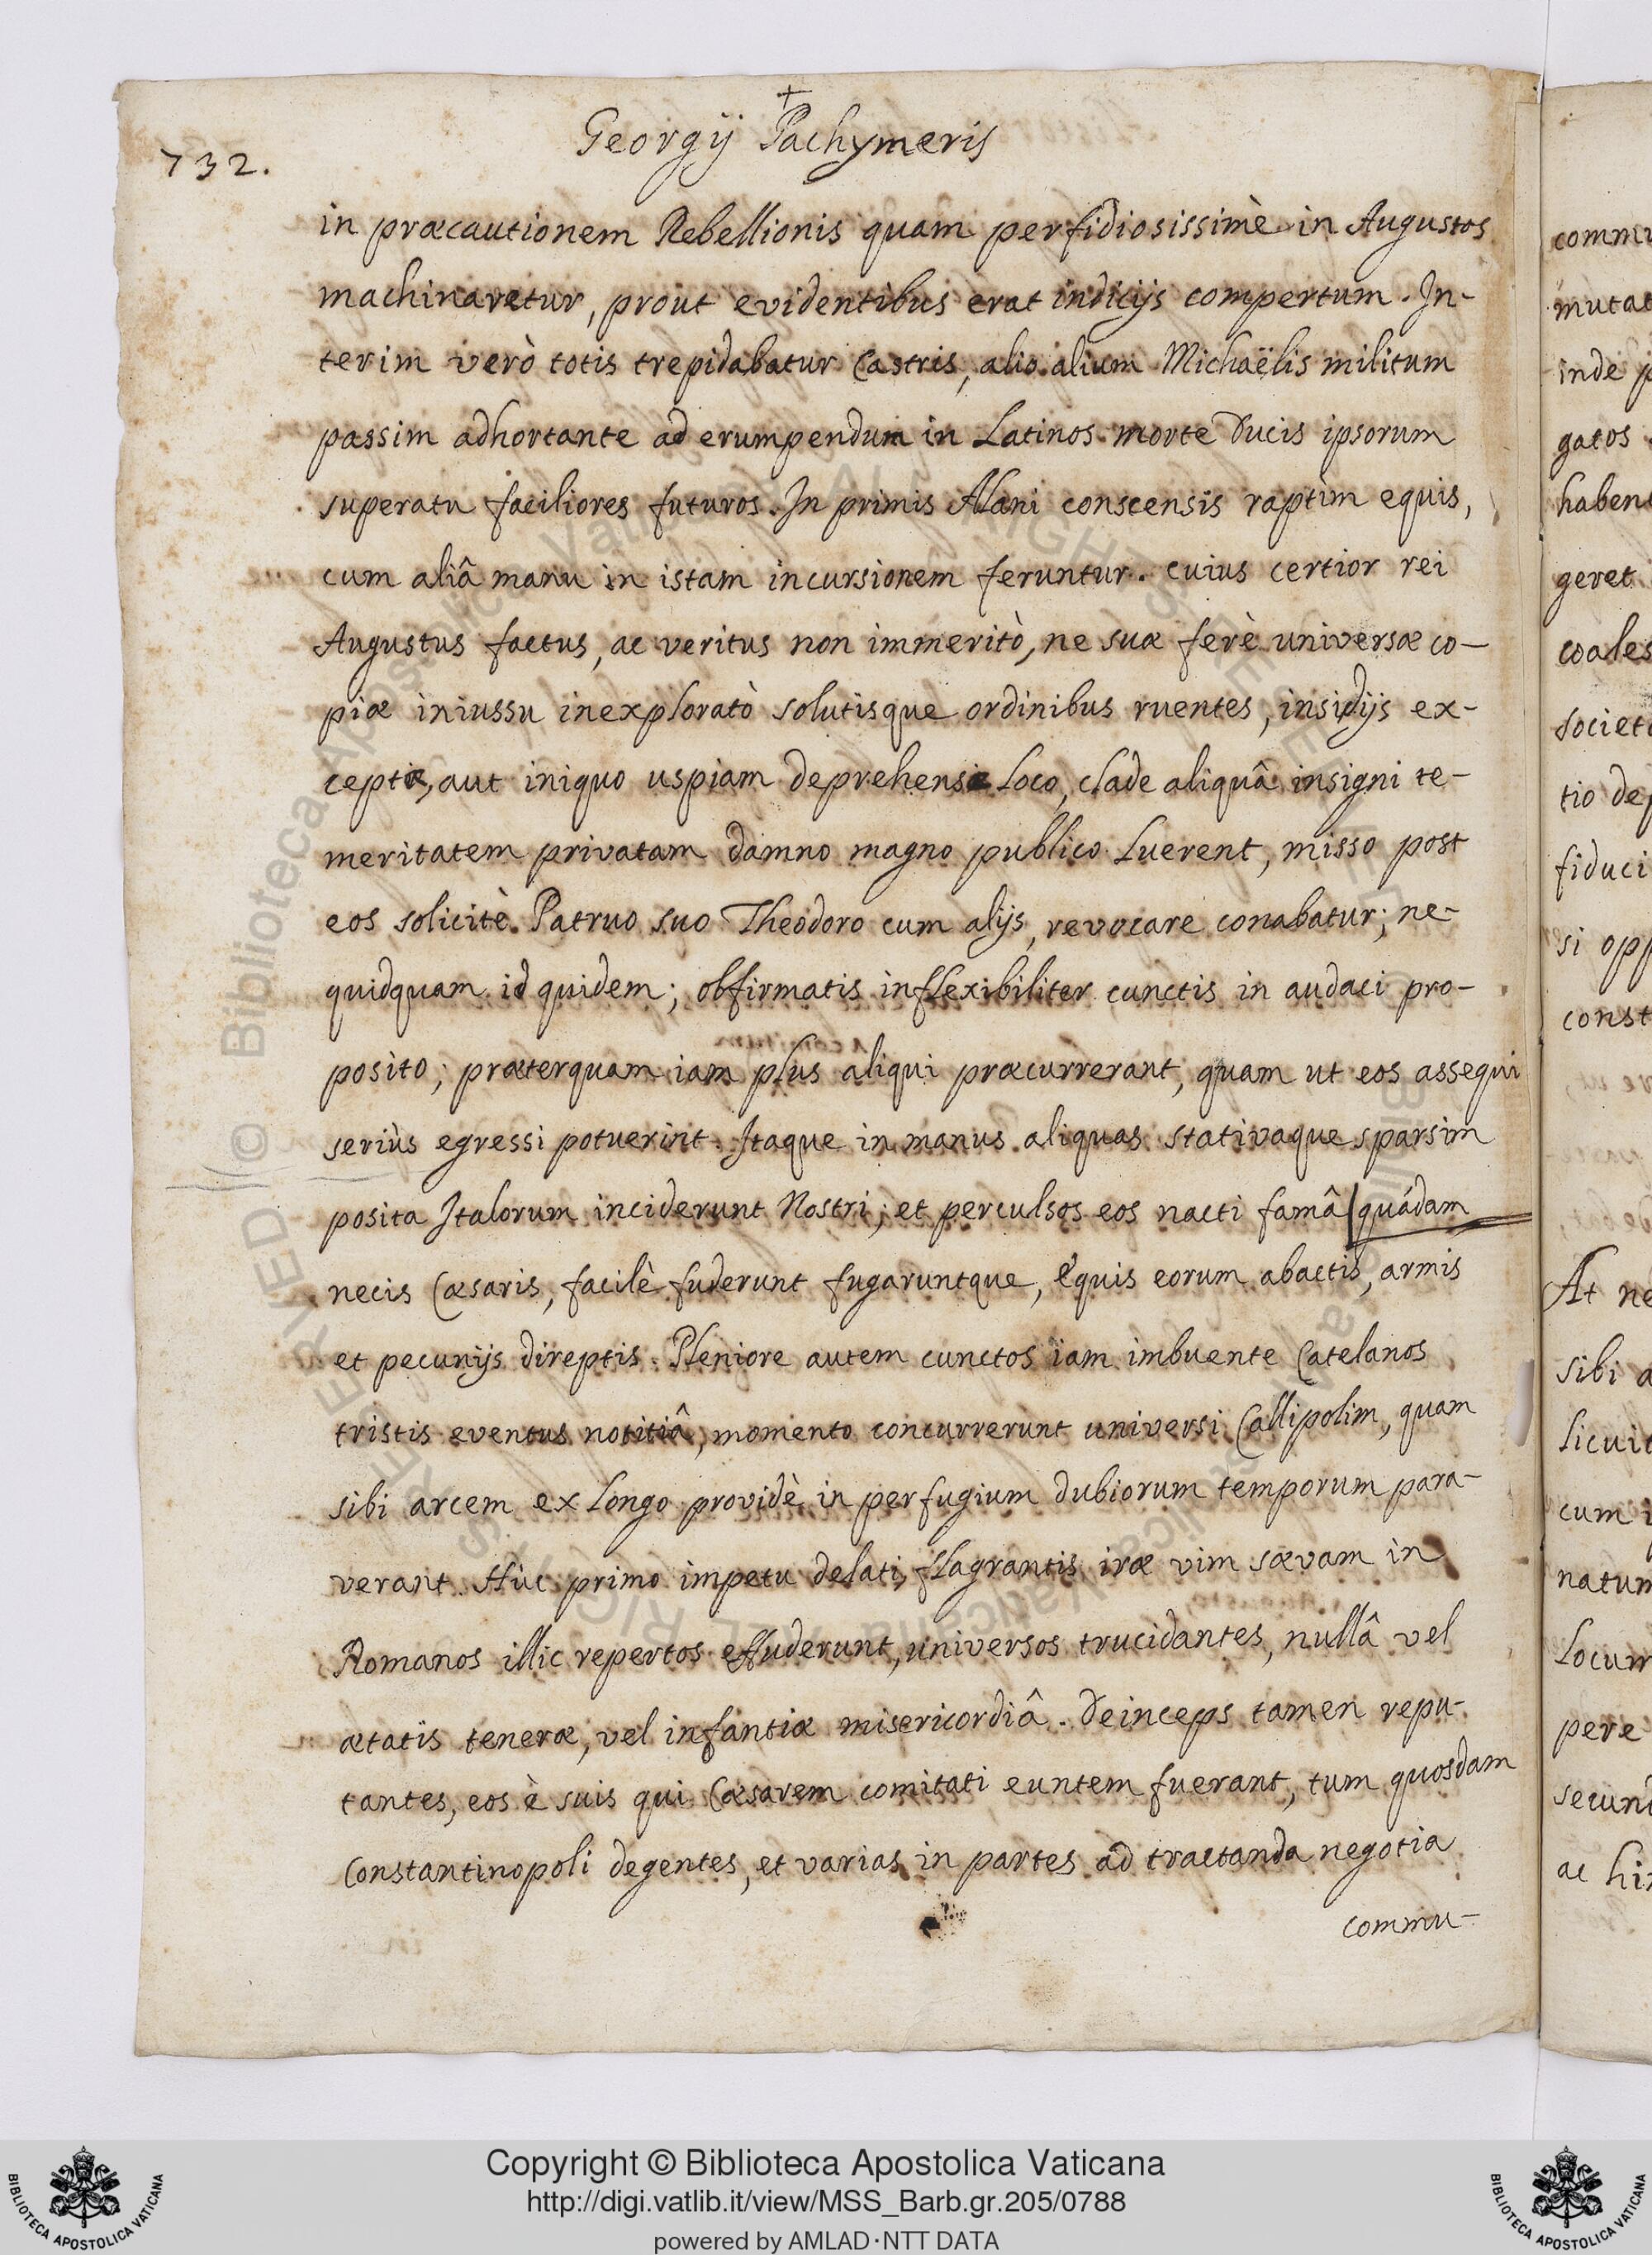 732.
Georgij Pachymeris
in præcautionem Rebellionis quam perfidiosissimè in Augustos
machinaretur, prout evidentibus erat indicijs compertum. In-
terim verò totis trepidabatur Castris, alio alium Michaëlis militum
passim adhortante ad erumpendum in Latinos morte Ducis ipsorum
superatu faciliores futuros. In primis Alani conscensis raptìm equis,
cum aliâ manu in istam incursionem feruntur. cuius certior rei
Augustus factus, ac veritus non immeritò, ne suæ ferè universæ co-
piæ iniussu inexploratò solutisque ordinibus ruentes, insidijs ex-
ceptæ, aut iniquo uspiam deprehensæ loco, clade aliquâ insigni te-
meritatem privatam damno magno publico luerent, misso post
eos solicitè Patruo suo Theodoro cum alijs, revocare conabatur; ne-
quidquam id quidem; obfirmatis inflexibiliter cunctis in audaci pro-
posito; præterquam iam plus aliqui præcurrerant, quam ut eos assequi
seriùs egressi potuerint. Itaque in manus aliquas stativaque sparsim
posita Italorum inciderunt Nostri; et perculsos eos nacti famâ quâdam
necis Cæsaris, facilè fuderunt fugaruntque, equis eorum abactis, armis
et pecunijs direptis. Pleniore autem cunctos iam imbuente Catelanos
tristis eventus notitiâ, momento concurrerunt universi Callipolim, quam
sibi arcem ex longo providè in perfugium dubiorum temporum para-
verant. Hùc primo impetu delati, flagrantis iræ vim sævam in
Romanos illic repertos effuderunt, universos trucidantes, nullâ vel
ætatis teneræ, vel infantiæ misericordiâ. Deinceps tamen repu-
tantes, eos è suis qui Cæsarem comitati euntem fuerant, tum quosdam
Constantinopoli degentes, et varias in partes ad tractanda negotia
commu-
commu
mutat
inde
gatos
habens
geret
coales
societ
tio
fiduci
si opp
const
At ne
sibi
licuit
cum
natum
locum
pere
secund
ac
© Biblioteca Apostolica Vaticana ALL RIGHTS RESERVED
Copyright © Biblioteca Apostolica Vaticana
http://digi.vatlib.it/view/MSS_Barb.gr.205/0788
powered by AMLAD·NTT DATA
BIBLIOTECA APOSTOLICA VATICANA
BIBLIOTECA APOSTOLICA VATICANA